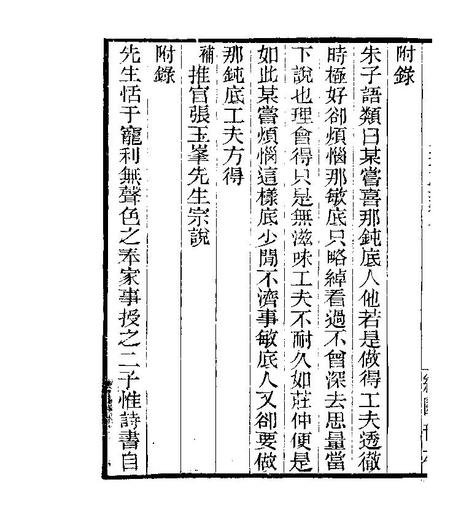 附錄
朱子語類曰某嘗喜那鈍底人他若是做得工夫透徹
時極好卻煩惱那敏底只略綽看過不曾深去思量當
下說也理會得只是無滋味工夫不耐久如莊仲便是
如此某嘗煩惱這樣底少閒不濟事敏底人又卻要做
那鈍底工夫方得
補推官張玉峯先生宗說
附錄
先生恬于寵利無聲色之奉家事授之二子惟詩書自